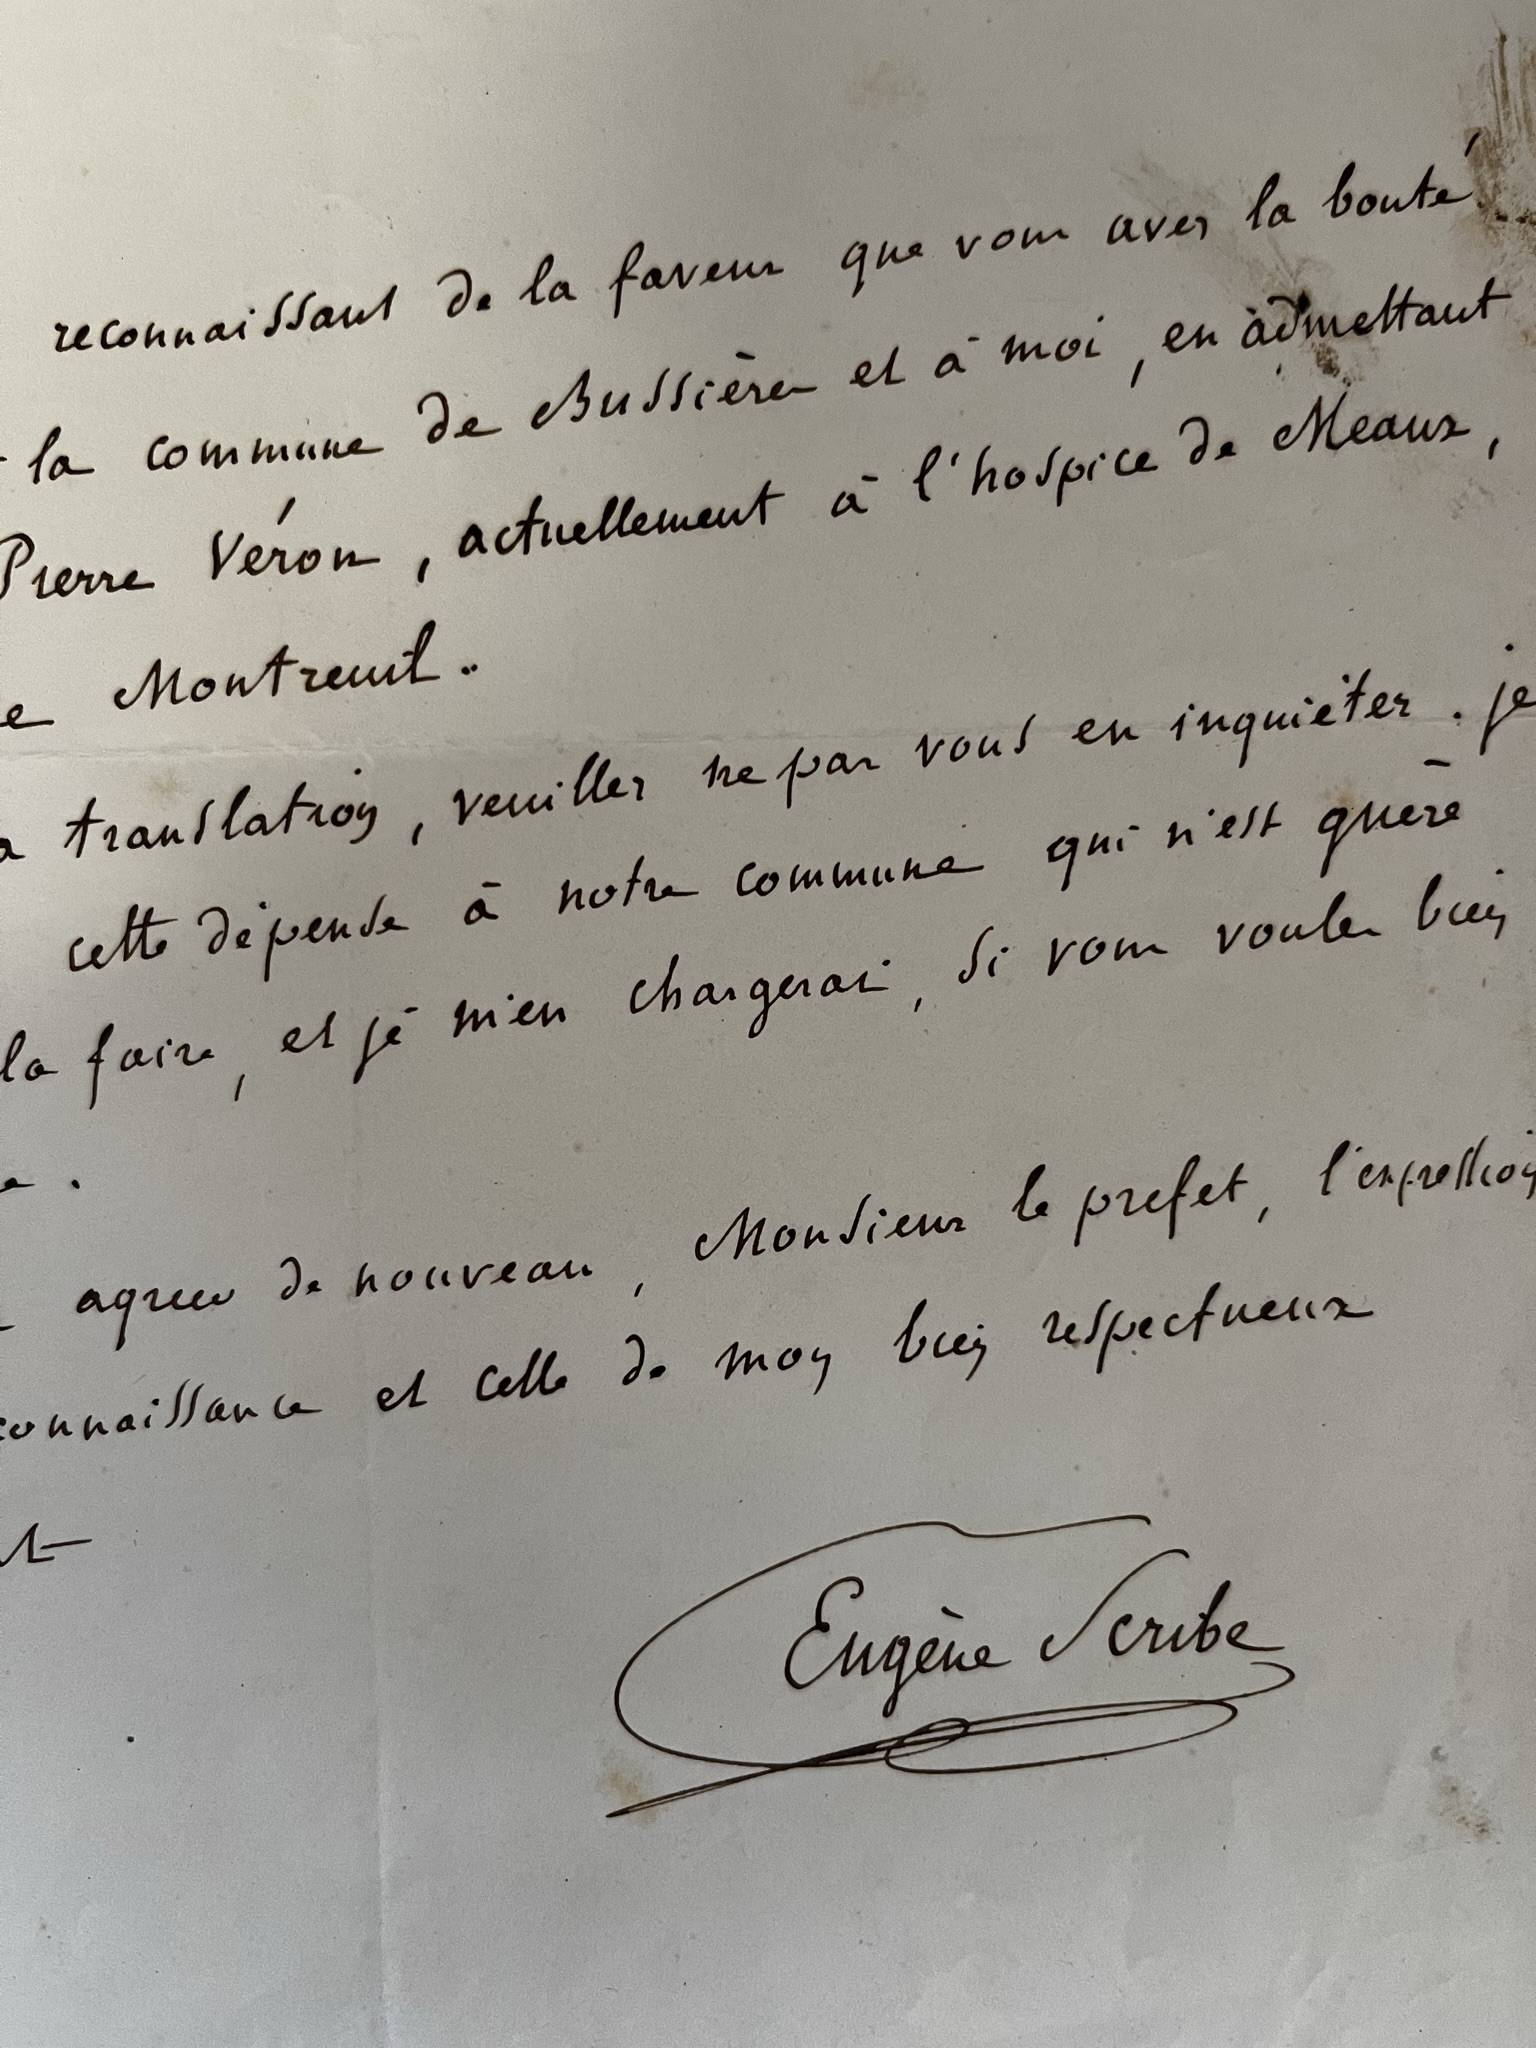 reconnaissant de la faveur que vous avez la bonté
la commune de Bussières et à moi, en admettant
Pierre Véron, actuellement à l'hospice de Meaux,
e Montreuil..
a translation, veuillez ne pas vous en inquiéter. je
cette dépense à notre commune qui n'est guère
la faire, et je m'en chargerai, si vous voulez bien
agréer de nouveau, Monsieur le préfet, l'expression
connaissance et celle de mon bien respectueux
Eugène Scribe